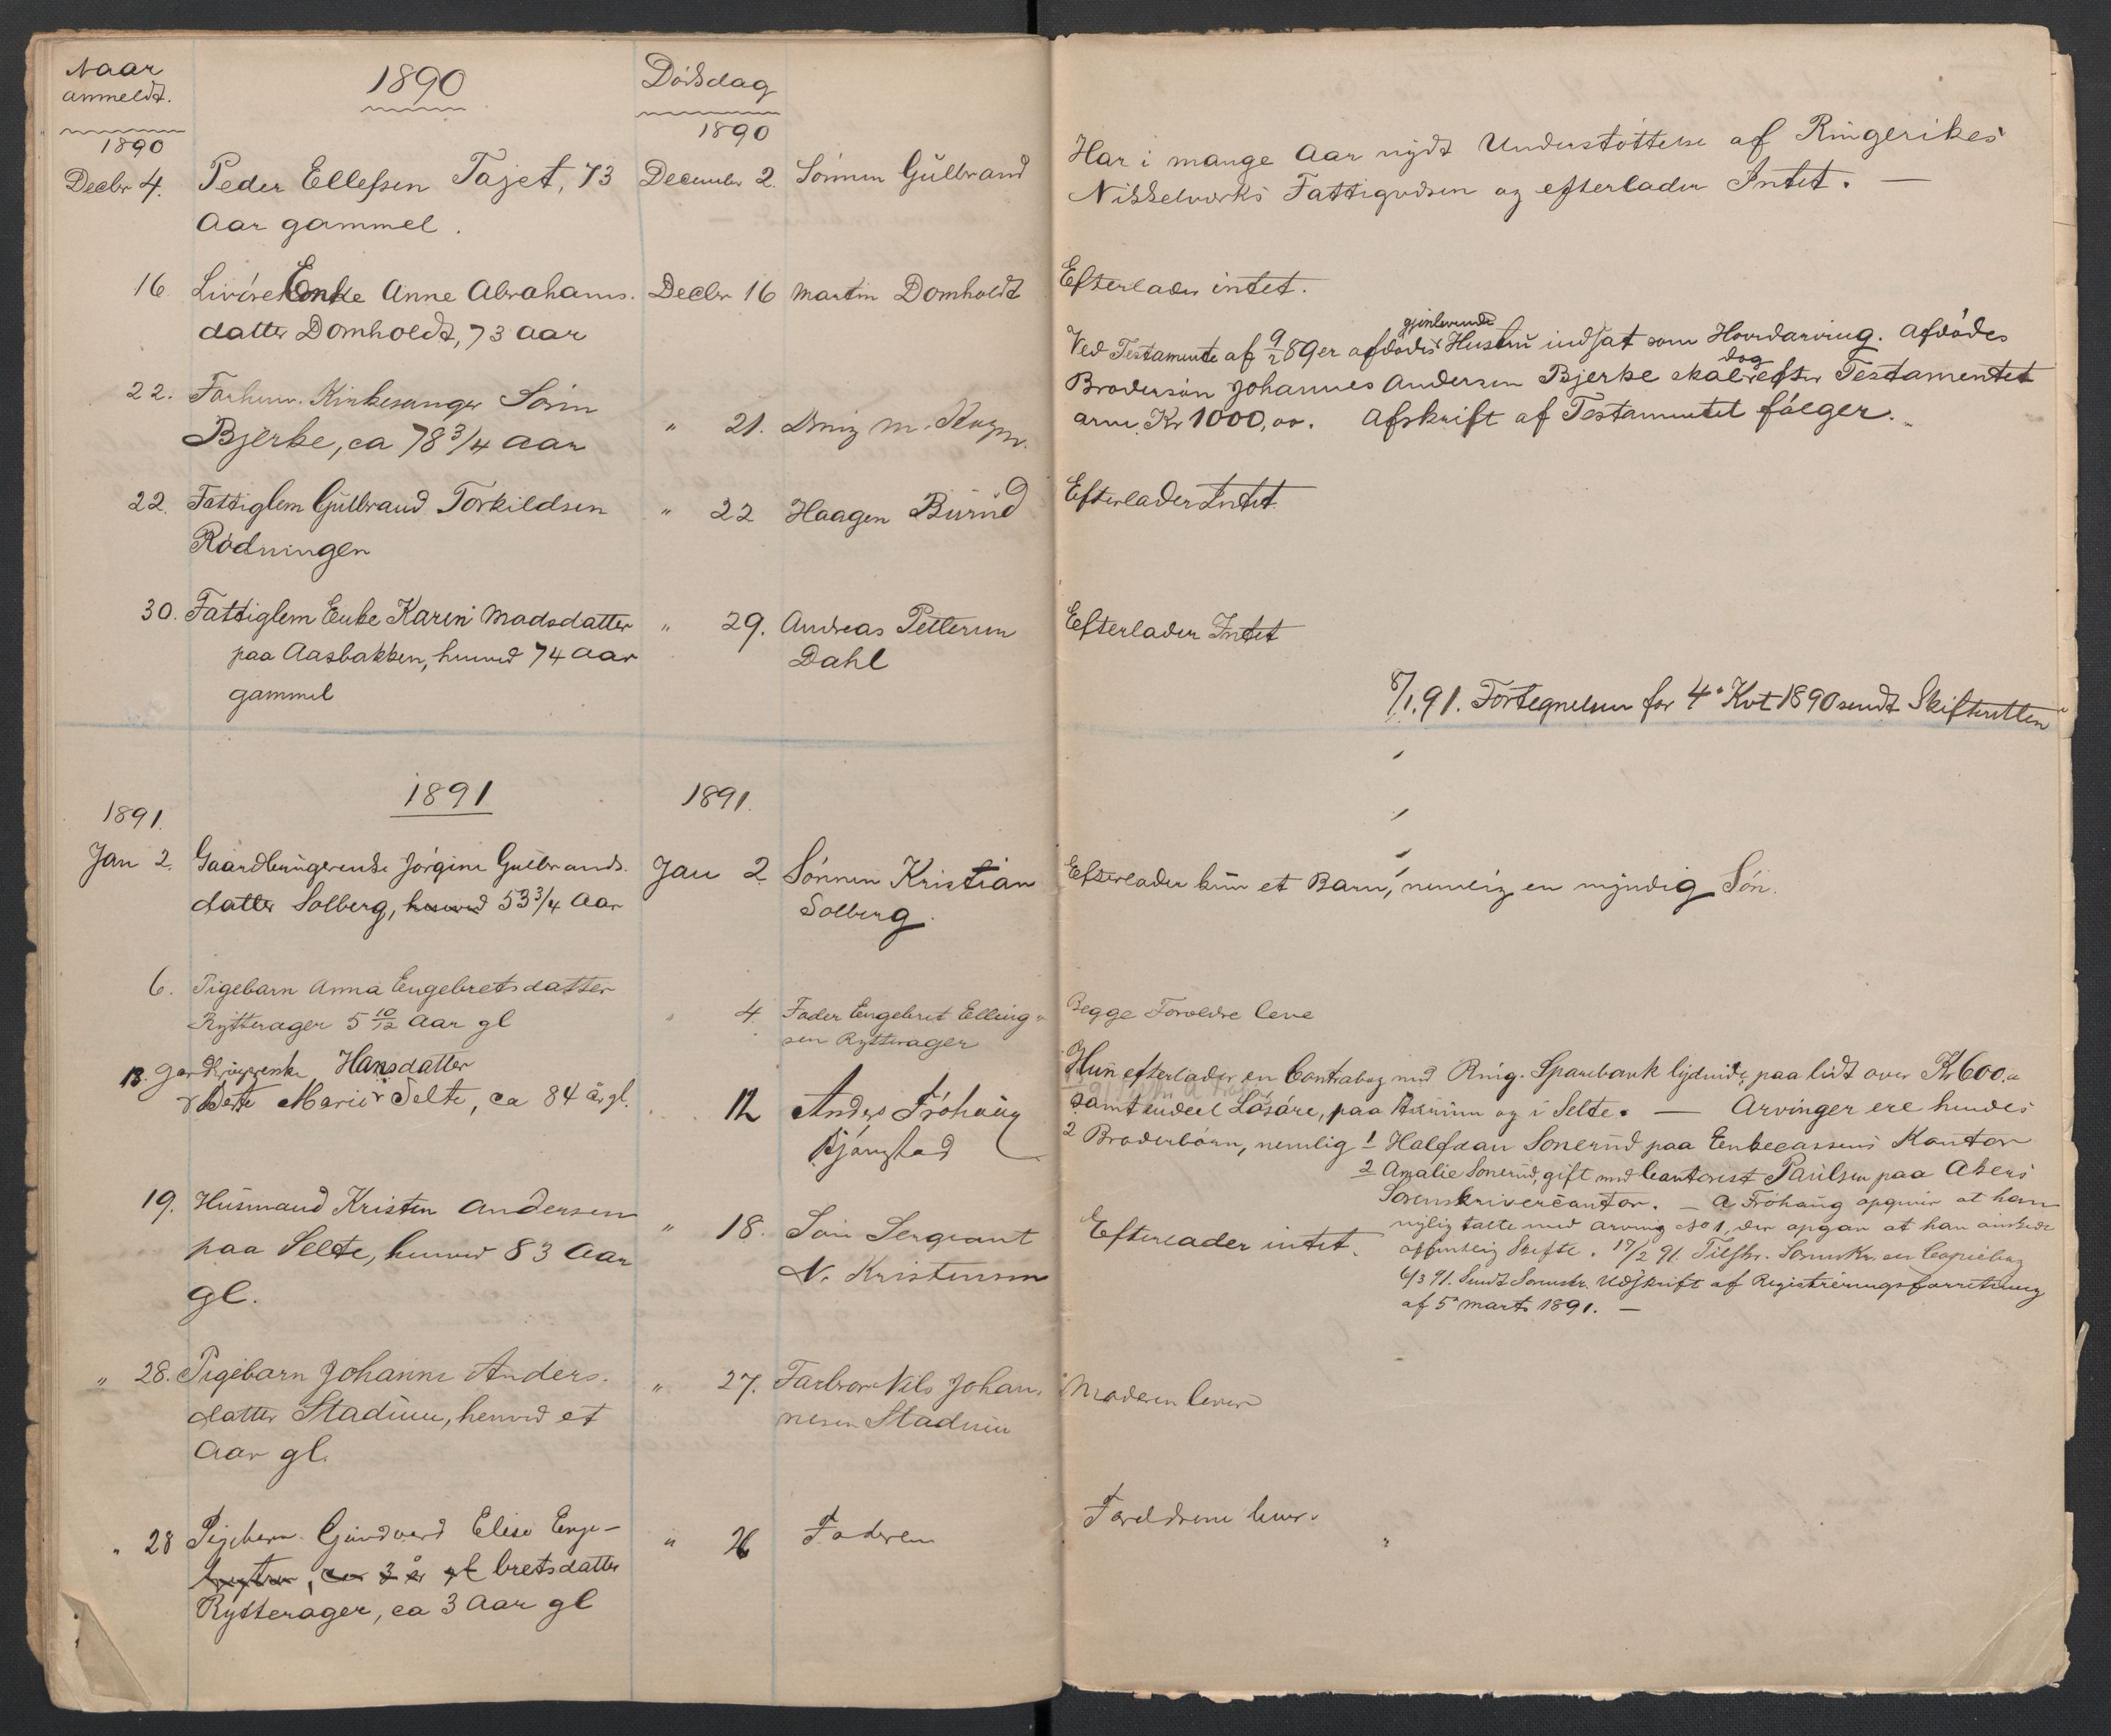 Naar
anmeldt.
1890
Dødsdag
1890
1890
Decbr 4. Peder Ellefsen Tajet, 73
Aar gammel.
December 2. Sønnen Gulbrand
Har i mange Aar nydt Understøttelse af Ringerikes
Nikkelværks Fattigvæsen og efterlader Intet. —
16. Enke Anne Abrahams-
datter Domholdt, 73 Aar
Decbr 16 Martin Domholdt
Efterlader intet.
22. Forhenv. Kirkesanger Sørin
Bjerke, ca 78 3/4 Aar
" 21.
Ved Testamente af 9/2 89 er afdødes gjenlevende Hustru indsat som Hovedarving. Afdødes
Brodersøn Johannes Andersen Bjerke skal dog efter Testamentet
arve Kr 1000,00. Afskrift af Testamentet følger.
22. Fattiglem Gulbrand Torkildsen
Rødningen
" 22 Haagen Burud
Efterlader Intet
30. Fattiglem Enke Karen Madsdatter
paa Aasbakken, henved 74 Aar
gammel
" 29. Andreas Pettersen
Dahl
Efterlader Intet
8/1.91. Fortegnelsen for 4de Kvt 1890 sendt Skifteretten
1891
1891.
1891.
Jan 2. Gaardbrugerenke Jørgine Gulbrands-
datter Solberg, henved 53 3/4 Aar
Jan 2 Sønnen Kristian
Solberg.
Efterlader kun et Barn, nemlig en myndig Søn.
6. Pigebarn Anna Engebretsdatter
Rytterager 5 10/12 Aar gl
" 4. Fader Engebret Elling-
sen Rytterager
Begge Forældre leve
13. Hansdatter
Marie Selte, ca 84 år gl.
12 Anders Frøhaug
Bjørnstad
Hun efterlader en Contrabog med Ring. Sparebank lydende paa lidt over Kr 600.
samt endeel Løsøre, paa og i Selte. — Arvinger ere hendes
2 Broderbørn, nemlig 1 Halfdan Sonerud paa Enkecassens Kontor
2 Amalie Sonerud, gift med Cantorist Paulsen paa Akers
Sorenskrivercantor. — A Frøhaug opgiver at han
nylig talte med Arving No 1, der opgav at han ønskede
offentlig Skifte. 17/2 91. Tilskr. Sorenskr. see Copiebog
6/3 91. Sendt Sorenskr. Udskrift af Registreringsforretning
af 5te Marts 1891. —
19. Husmand Kristen Andersen
paa Selte, henved 83 Aar
gl.
" 18. Søn Sergeant
N. Kristensen
Efterlader intet.
" 28. Pigebarn Johanne Anders-
datter Stadum, henved et
Aar gl.
" 27. Farbror Nils Johan-
nesen Stadum
Moderen lever
" 28 Pigebarn Gundvard Elise Enge-
bretsdatter
Rytterager, ca 3 Aar gl
" 26 Faderen
Forældrene lever.